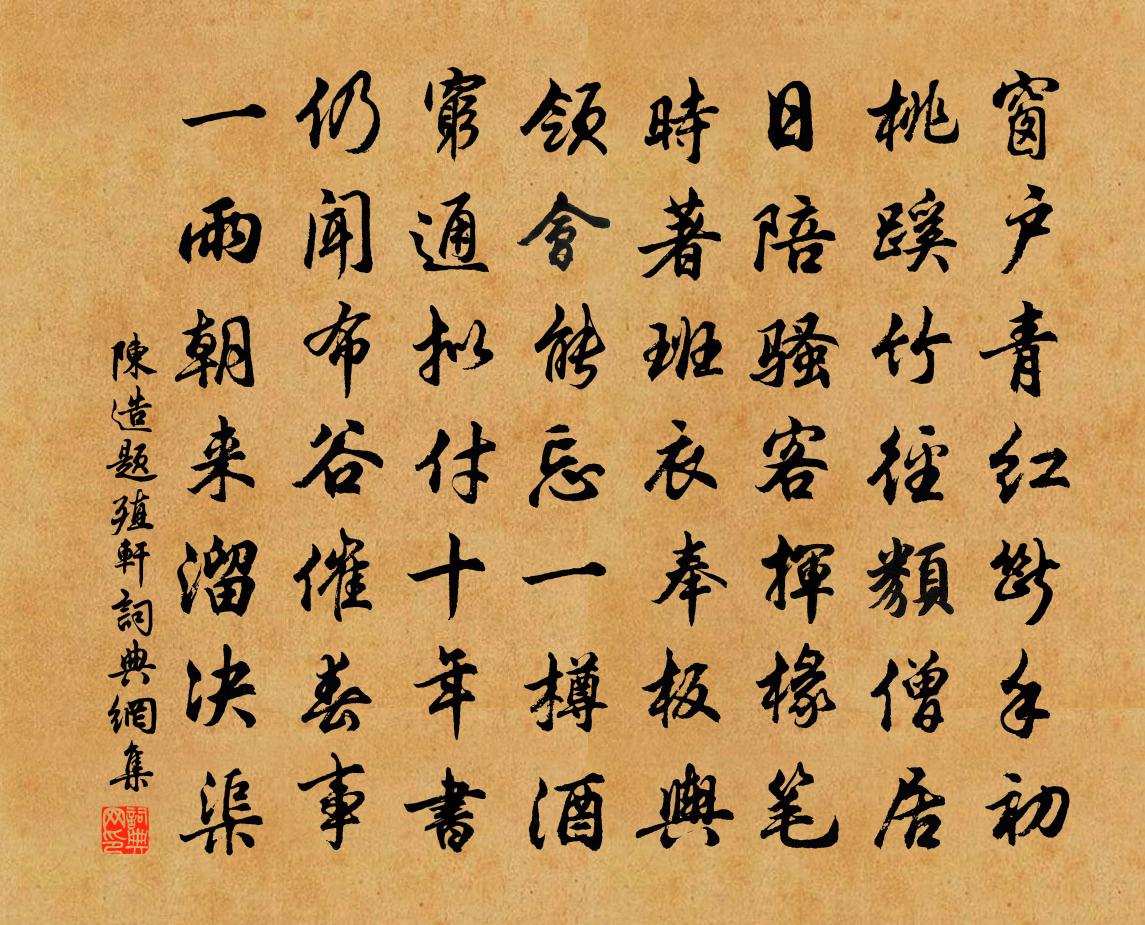 窗户青红斷手初
桃蹊竹徑類僧居
日陪騷客揮椽笔
時著班衣奉板輿
領會能忘一樽酒
窮通拟付十年書
仍聞布谷催春事
一雨朝来溜决渠
陳造題殖軒詞典網集
詞典网印